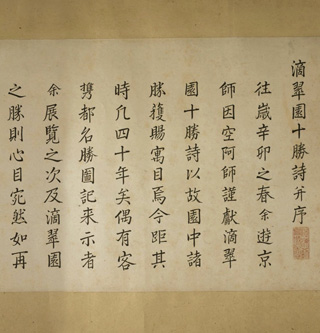 滴翠園十勝詩并序
往歳辛卯之春余遊京
師因空阿師謹獻滴翠
園十勝詩以故園中諸
勝獲賜寓目焉今距其
時凡四十年矣偶有客
携都名勝圖記来示者
余展覽之次及滴翠園
之勝則心目宛然如再